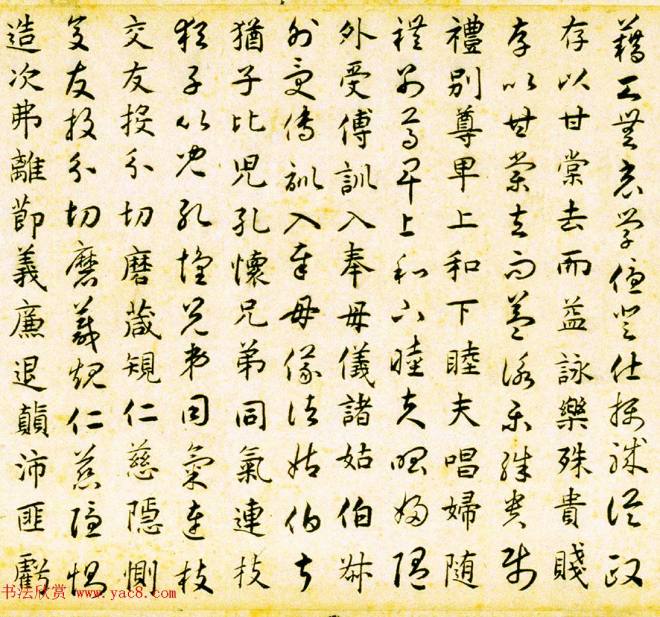 藉甚無竟學優登仕攝職從政
存以甘棠去而益詠樂殊貴賤
存以甘棠去而益詠樂殊貴賤
禮別尊卑上和下睦夫唱婦随
禮別尊卑上和下睦夫唱婦随
外受傅訓入奉母儀諸姑伯叔
外受傅訓入奉母儀諸姑伯叔
猶子比児孔懷兄弟同氣連枝
猶子比児孔懷兄弟同氣連枝
交友投分切磨箴規仁慈隱惻
交友投分切磨箴規仁慈隱惻
造次弗離節義廉退顛沛匪虧
书法欣赏 www.yac8.com